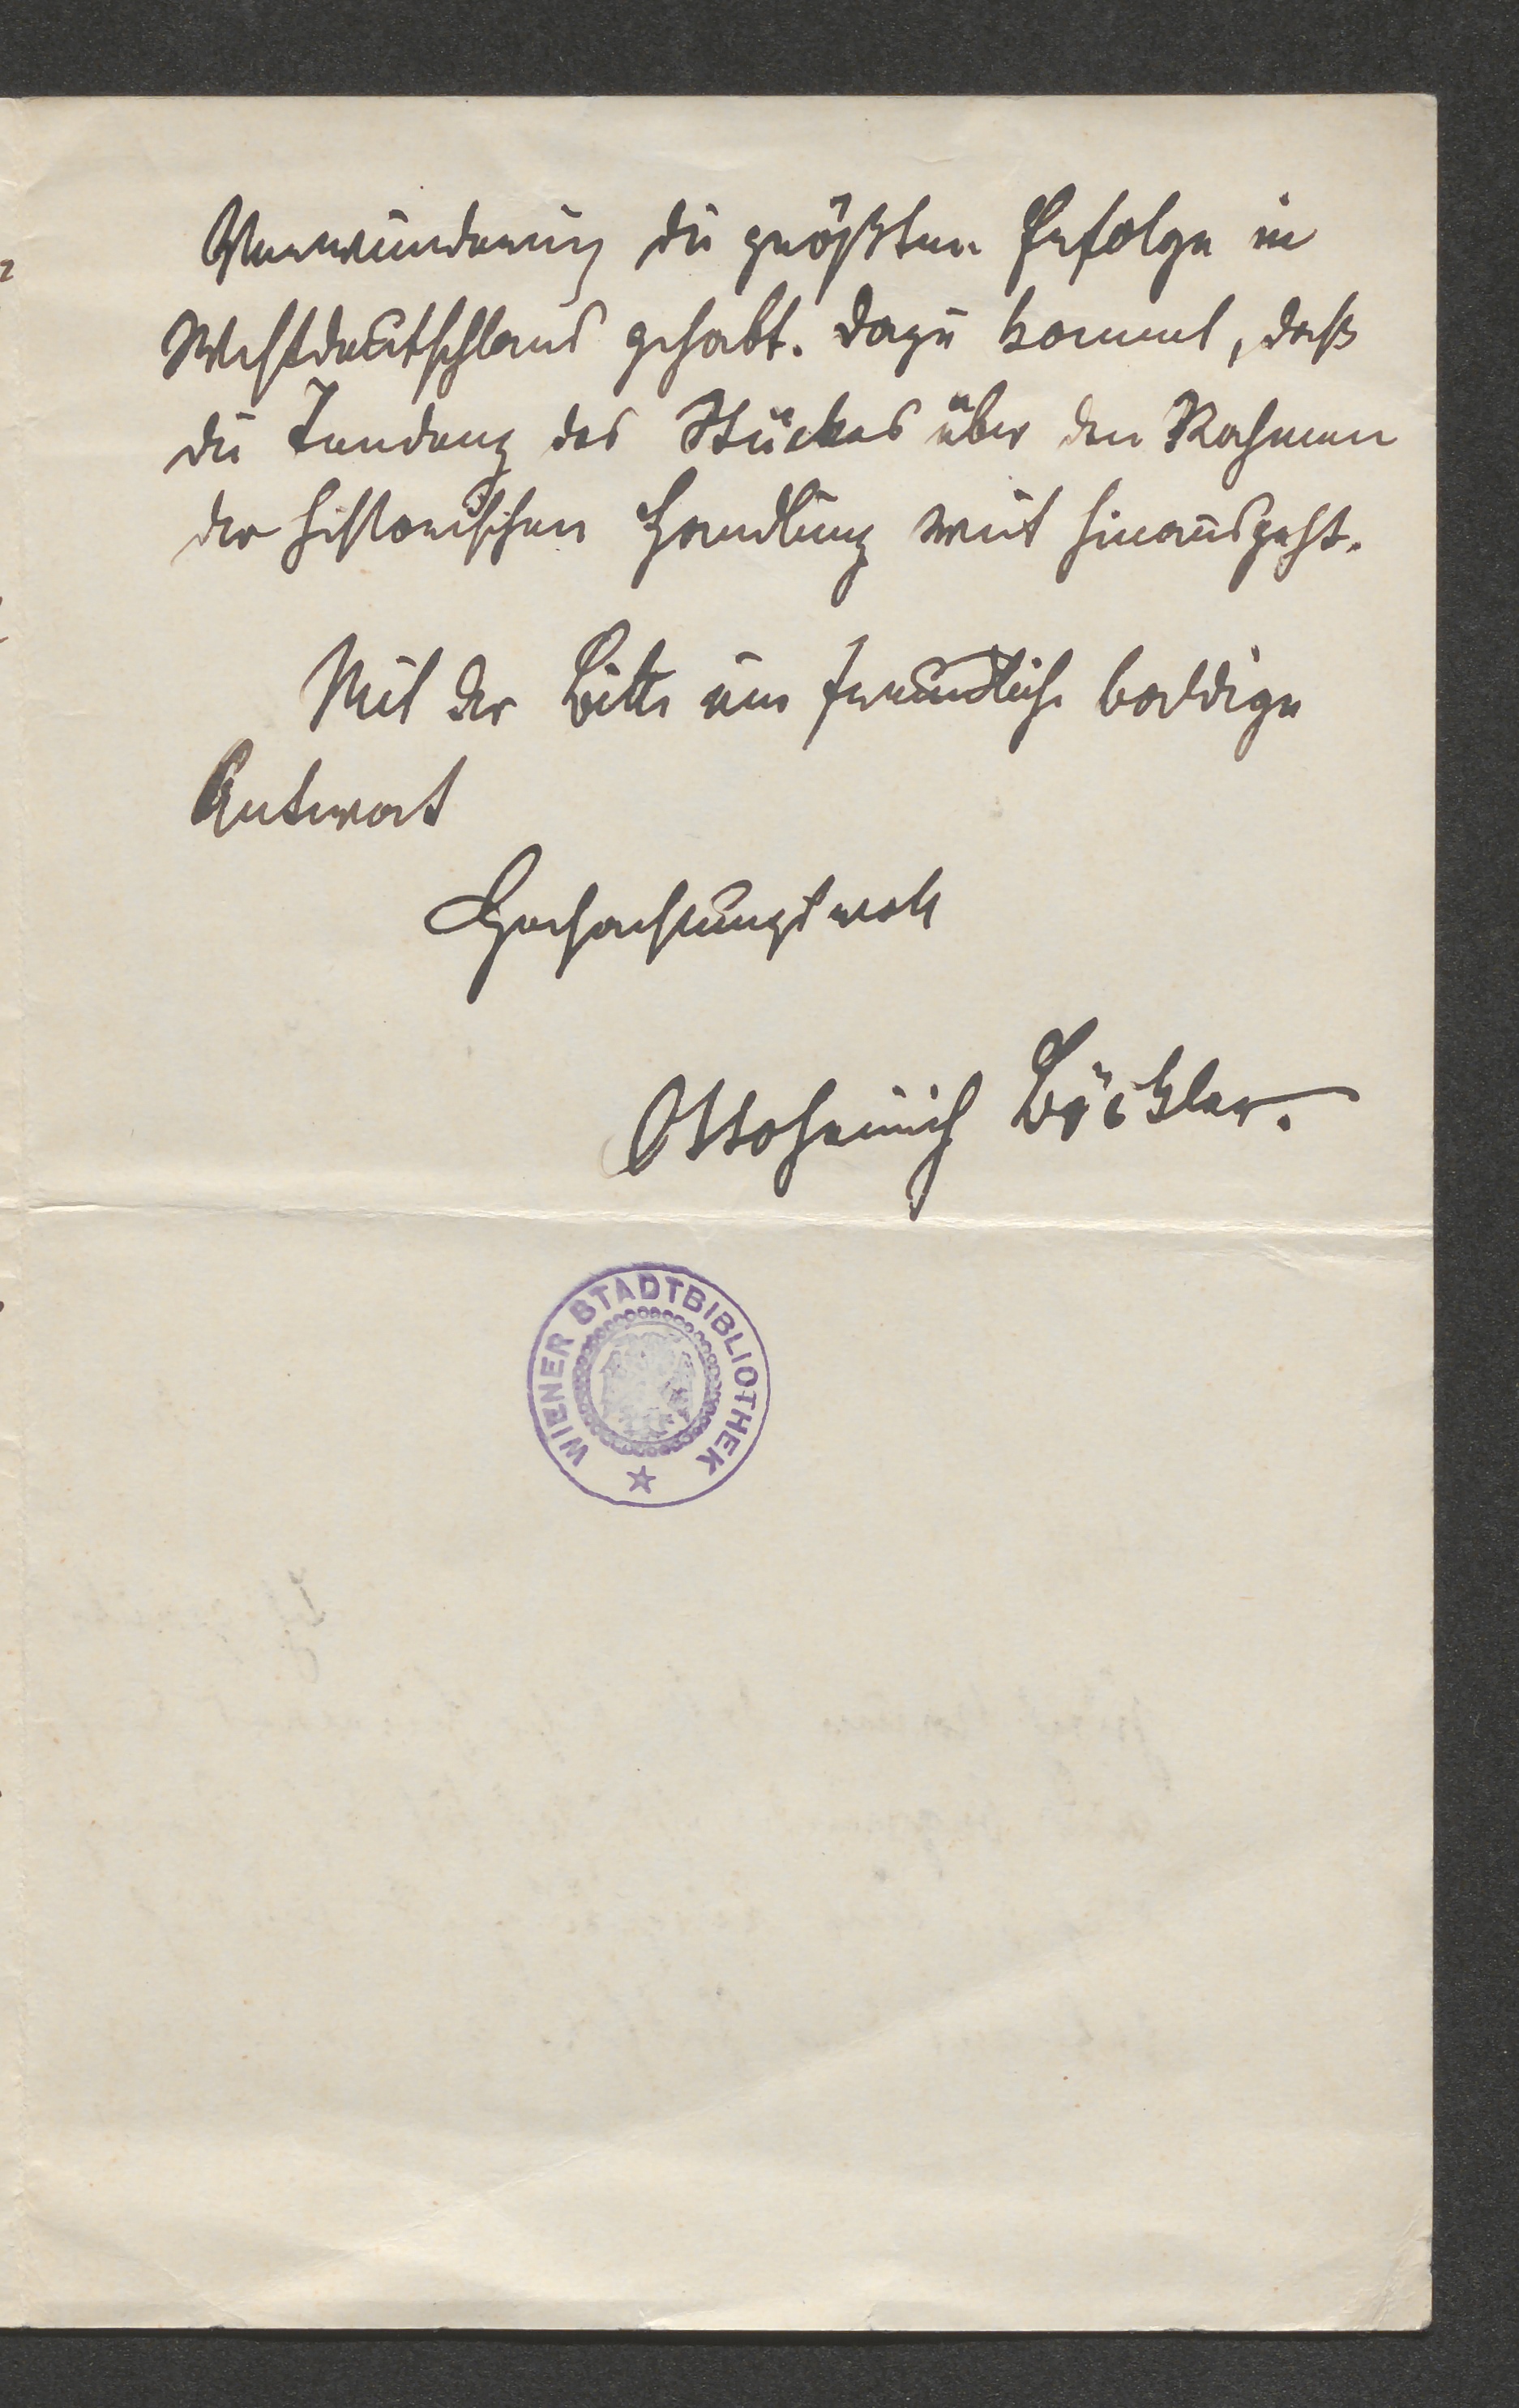 Verwunderung die größten Erfolge in
Westdeutschland gehabt. Dazu kommt, daß
die Tendenz des Stückes über den Rahmen
der historischen Handlung weit hinausgeht.
Mit der Bitte um freundliche baldige
Antwort
Hochachtungsvoll
Ottoheinrich Böckler.
WIENER STADTBIBLIOTHEK